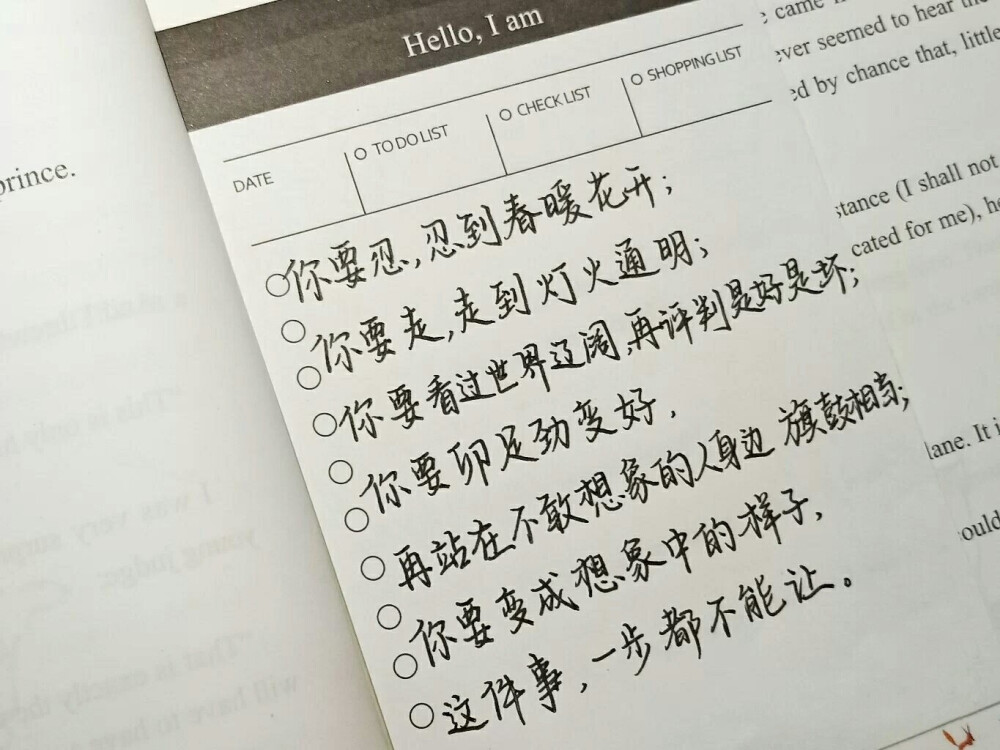 Hello, I am
DATE
TO DO LIST
CHECK LIST
SHOPPING LIST
你要忍,忍到春暖花开;
你要走,走到灯火通明;
你要看过世界辽阔,再评判是好是坏;
你要卯足劲变好,
再站在不敢想象的人身边 旗鼓相当;
你要变成想象中的样子,
这件事,一步都不能让。
prince.
came
ever seemed to hear the
ed by chance that, little
stance (I shall not
cated for me), he
lane. It i
ould